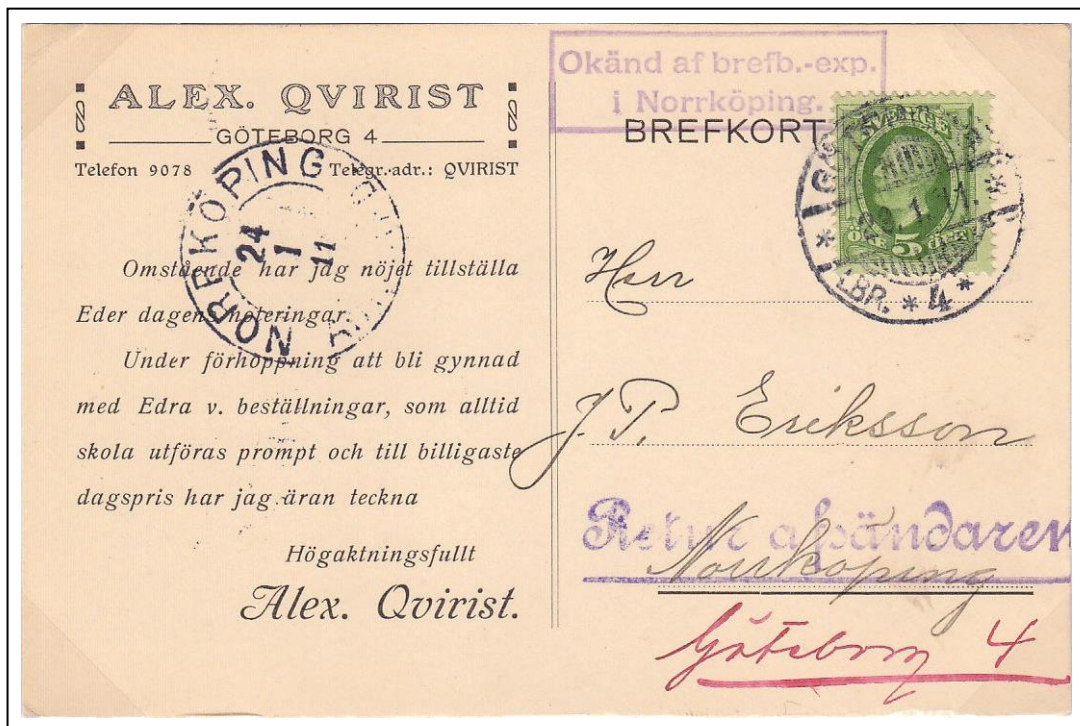 ALEX. QVIRIST
GÖTEBORG 4
Telefon 9078 Telegr.-adr.: QVIRIST
NORRKÖPING
24
1
11
Omstående har jag nöjet tillställa
Eder dagens noteringar.
Under förhoppning att bli gynnad
med Edra v. beställningar, som alltid
skola utföras prompt och till billigaste
dagspris har jag äran teckna
Högaktningsfullt
Alex. Qvirist.
Okänd af brefb.-exp.
i Norrköping.
BREFKORT
SVERIGE
ÖRE 5 ÖRE
1. 11.
LBR. * 4 *
Herr
J. P. Eriksson
Retur afsändaren
Norrköping
Göteborg 4